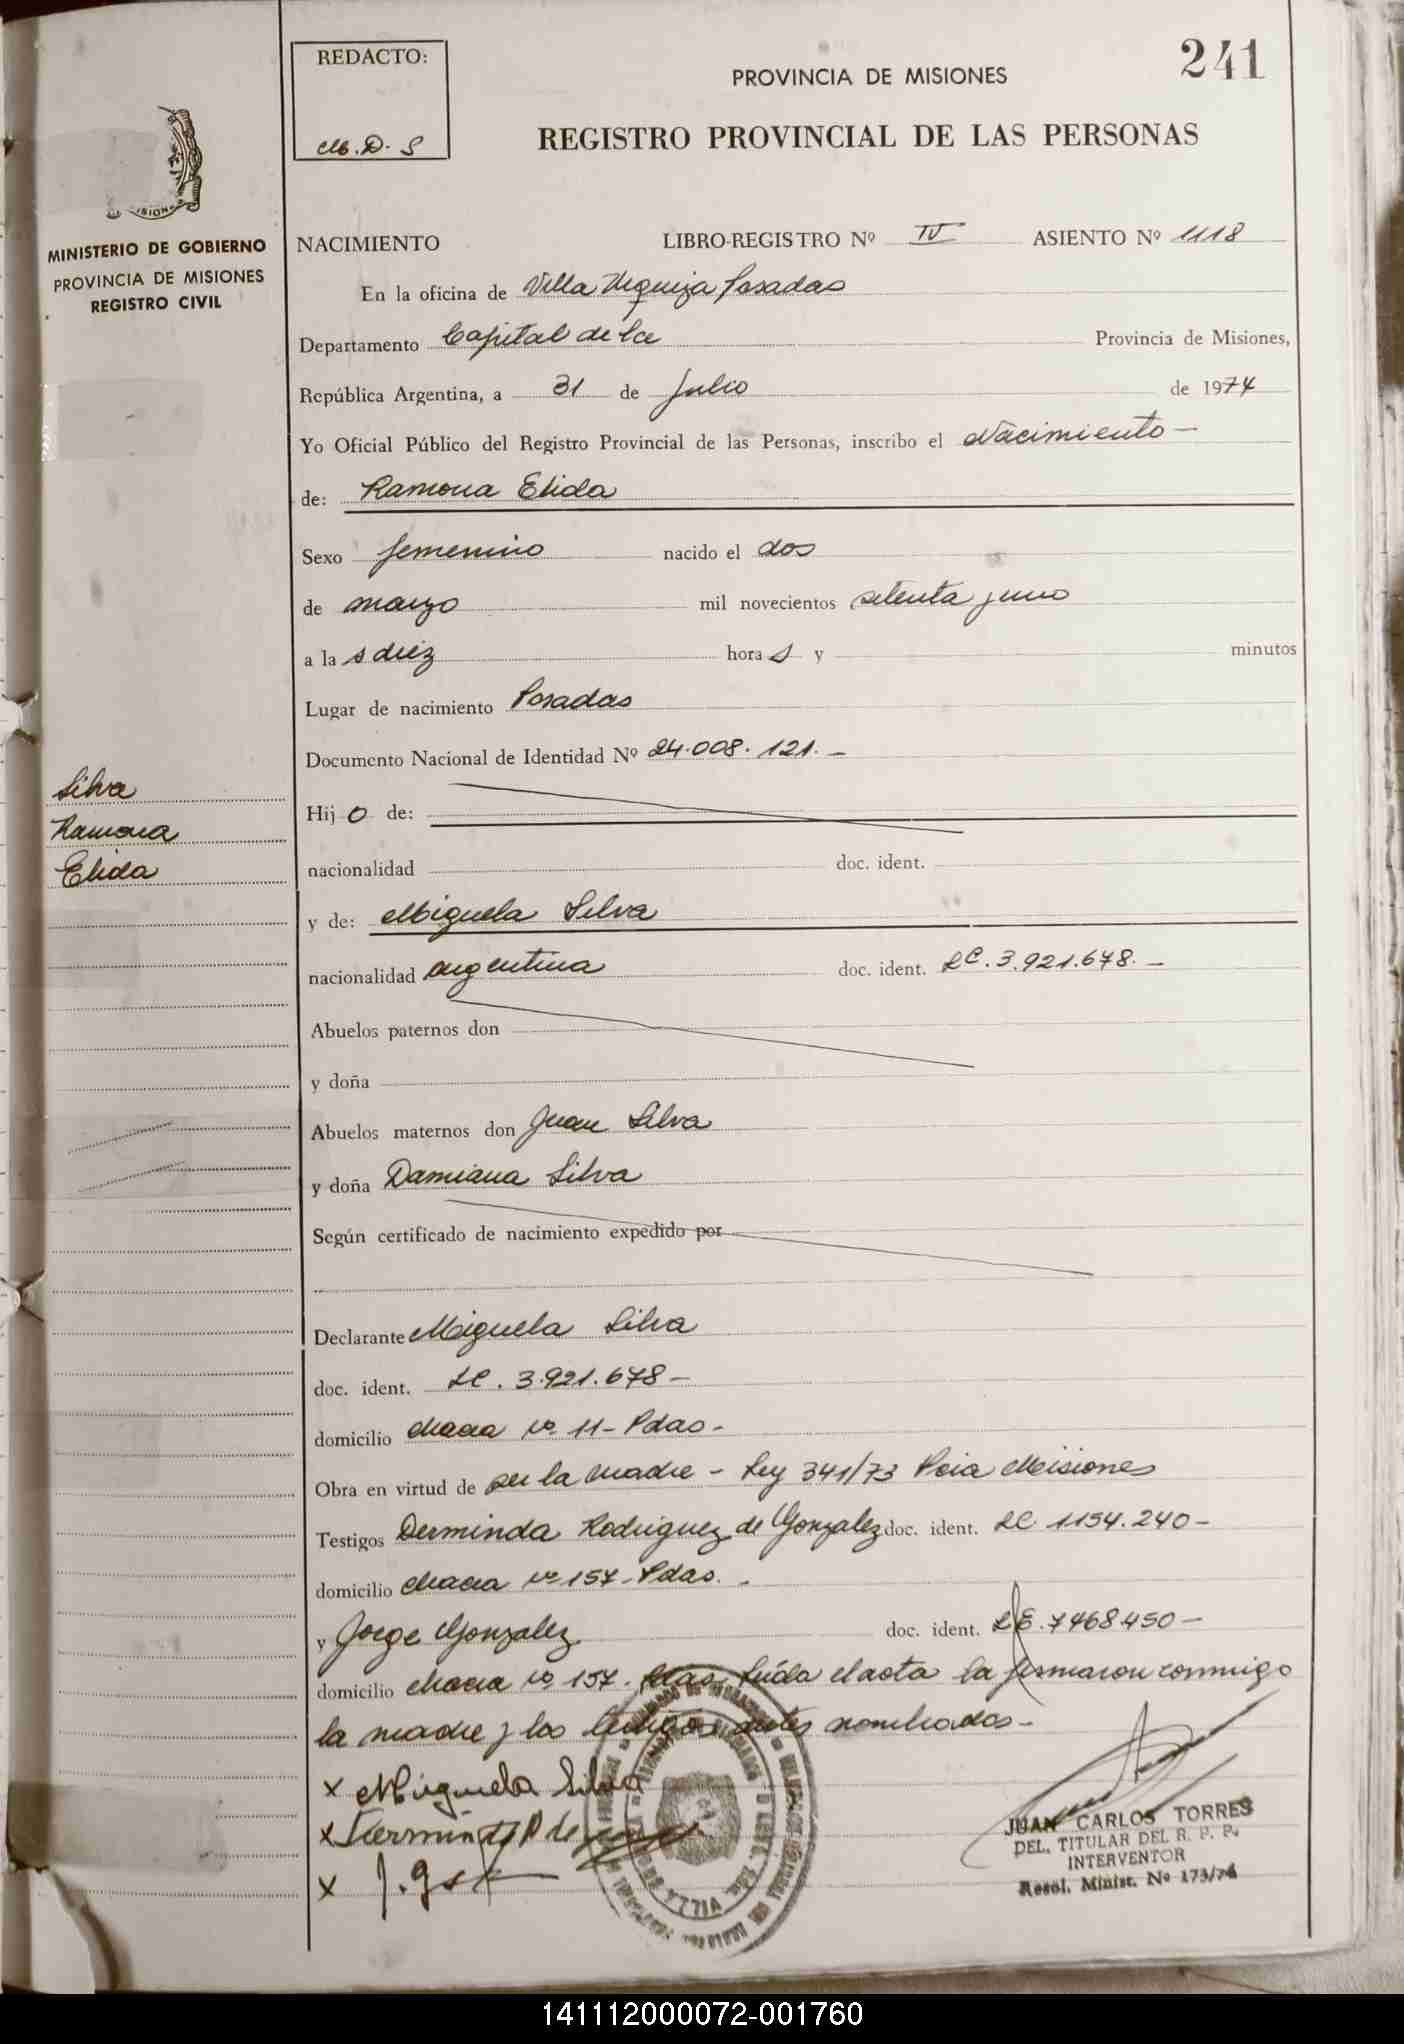 241
REDACTO:
M. D. S
PROVINCIA DE MISIONES
REGISTRO PROVINCIAL DE LAS PERSONAS
MINISTERIO DE GOBIERNO
PROVINCIA DE MISIONES
REGISTRO CIVIL
NACIMIENTO LIBRO-REGISTRO Nº IV ASIENTO Nº 1118
En la oficina de Villa Urquiza Posadas
Departamento Capital de la Provincia de Misiones,
República Argentina, a 31 de Julio de 1974
Yo Oficial Público del Registro Provincial de las Personas, inscribo el Nacimiento —
de: Ramona Elida
Sexo femenino nacido el dos
de marzo mil novecientos setenta y uno
a la s diez hora s y minutos
Lugar de nacimiento Posadas
Documento Nacional de Identidad Nº 24.008.121.—
Silva
Ramona
Elida
Hij o de:
nacionalidad doc. ident.
y de: Miguela Silva
nacionalidad argentina doc. ident. LC. 3.921.678.—
Abuelos paternos don
y doña
Abuelos maternos don Juan Silva
y doña Damiana Silva
Según certificado de nacimiento expedido por
Declarante Miguela Silva
doc. ident. LC. 3.921.678—
domicilio chacra nº 11- Pdas-
Obra en virtud de ser la madre - Ley 341/73 Pcia Misiones
Testigos Derminda Rodriguez de Gonzalez doc. ident. LC 1154.240—
domicilio chacra nº 157- Pdas.
y Jorge Gonzalez doc. ident. LE. 7468450—
domicilio chacra nº 157. Pdas. Leída el acta la firmaron conmigo
la madre y los testigos antes nombrados-
x Miguela Silva
x
x
JUAN CARLOS TORRES
DEL. TITULAR DEL R. P. P.
INTERVENTOR
Resol. Minist. Nº 173/74
141112000072-001760